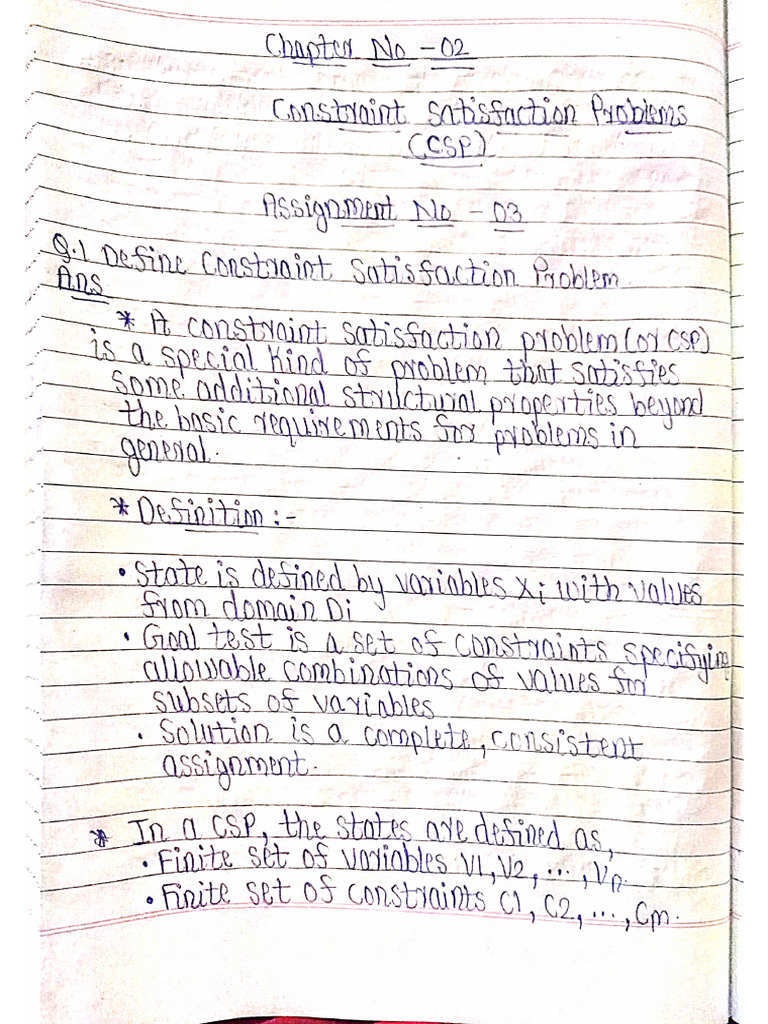 Chapter No - 02
Constraint Satisfaction Problems
(CSP)
Assignment No - 03
Q.1 Define Constraint Satisfaction Problem.
Ans
* A constraint satisfaction problem (or CSP)
is a special kind of problem that satisfies
some additional structural properties beyond
the basic requirements for problems in
general.
* Definition :-
• State is defined by variables Xi with values
from domain Di
• Goal test is a set of constraints specifying
allowable combinations of values for
subsets of variables
• Solution is a complete, consistent
assignment.
* In a CSP, the states are defined as,
• Finite set of variables V1, V2, ..., Vn.
• Finite set of constraints C1, C2, ..., Cm.